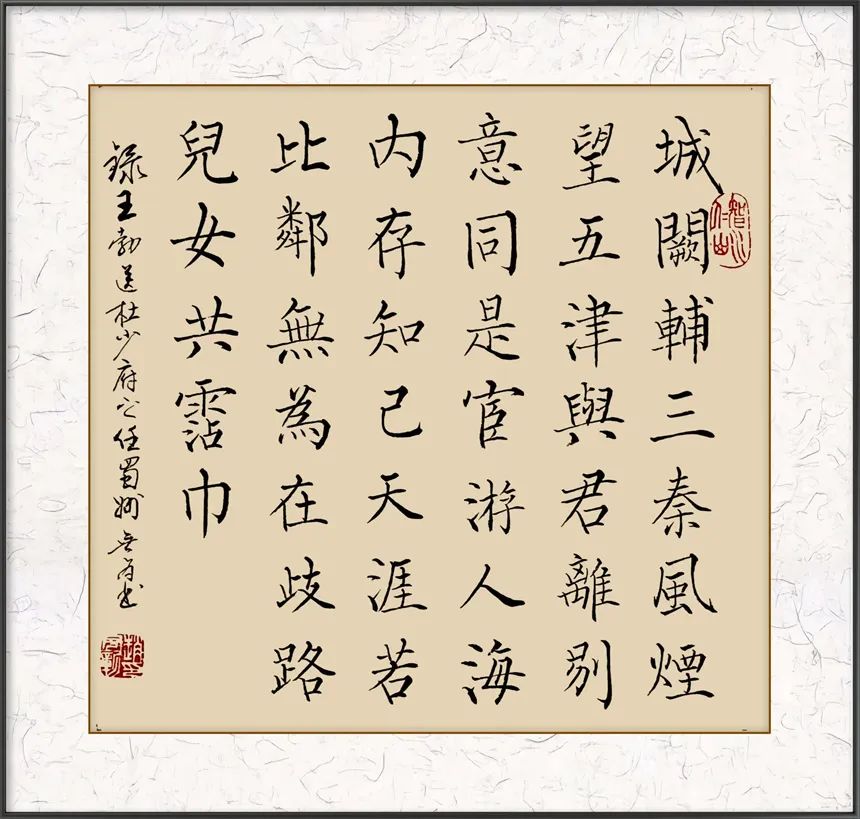 城闕輔三秦風煙
望五津與君離別
意同是宦游人海
内存知己天涯若
比鄰無為在歧路
兒女共霑巾
録王勃送杜少府之任蜀州
智水仁山